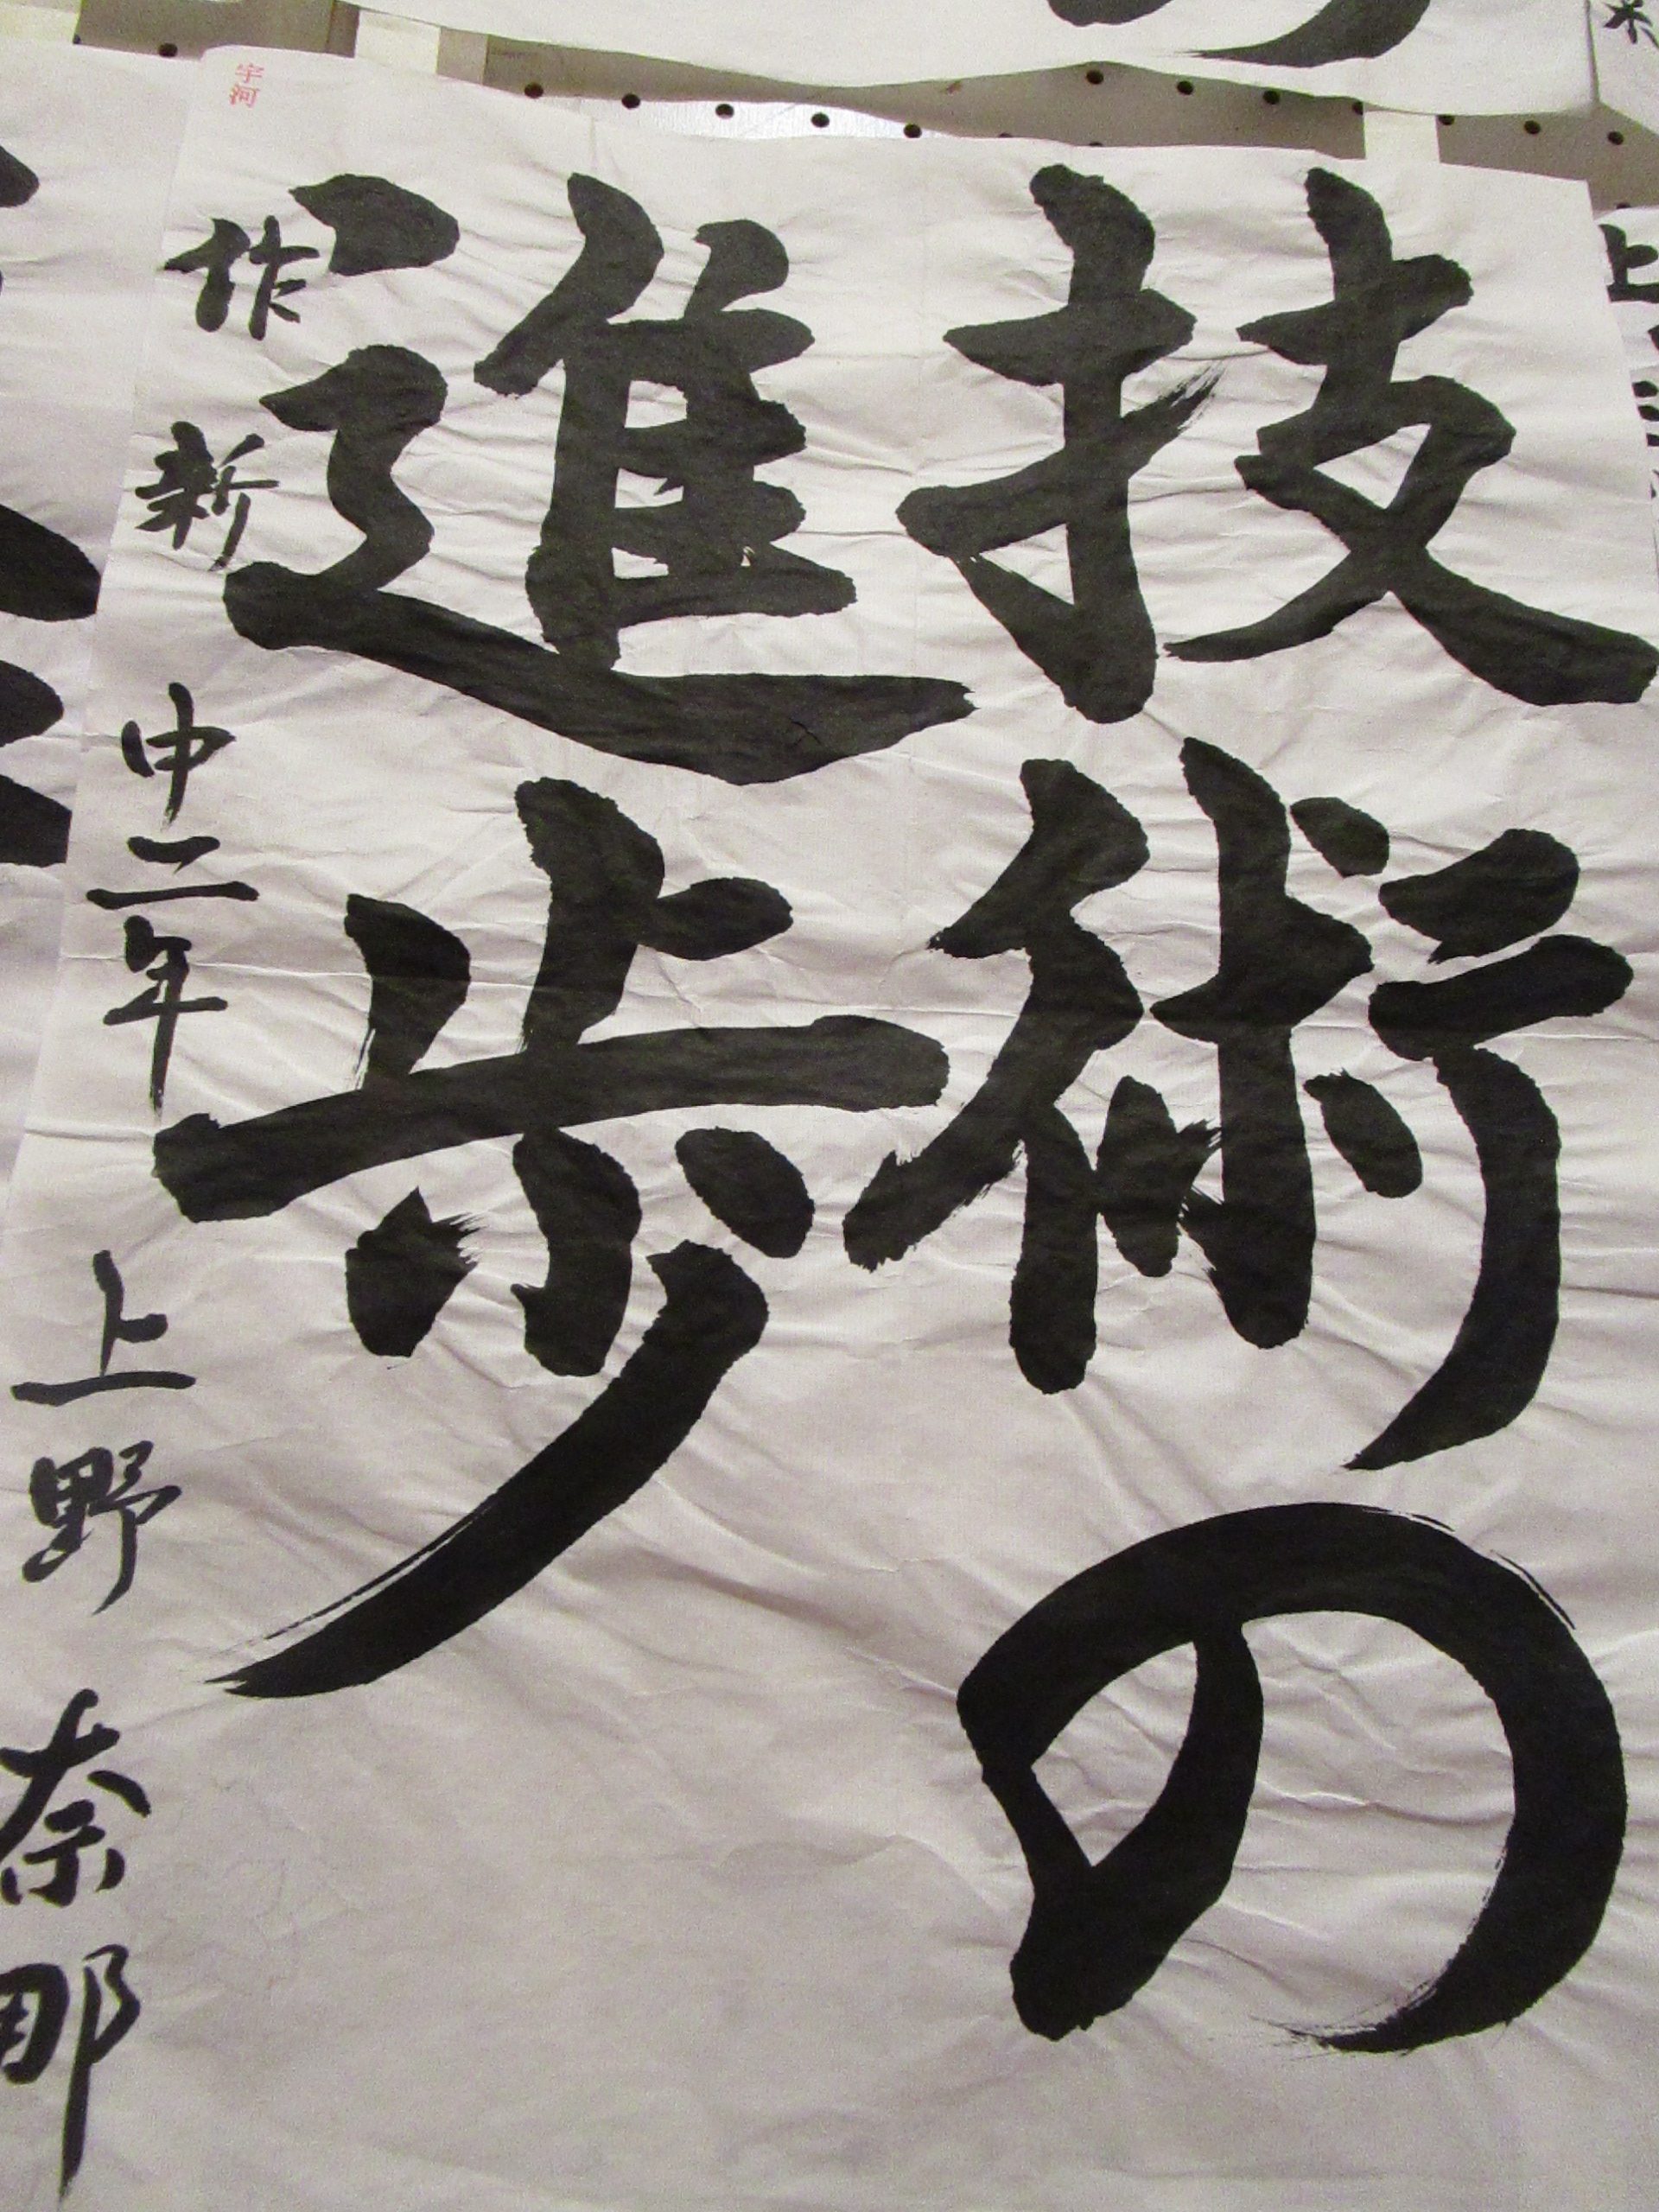 技術の
進歩
作新 中二年 上野 奈那
宇河